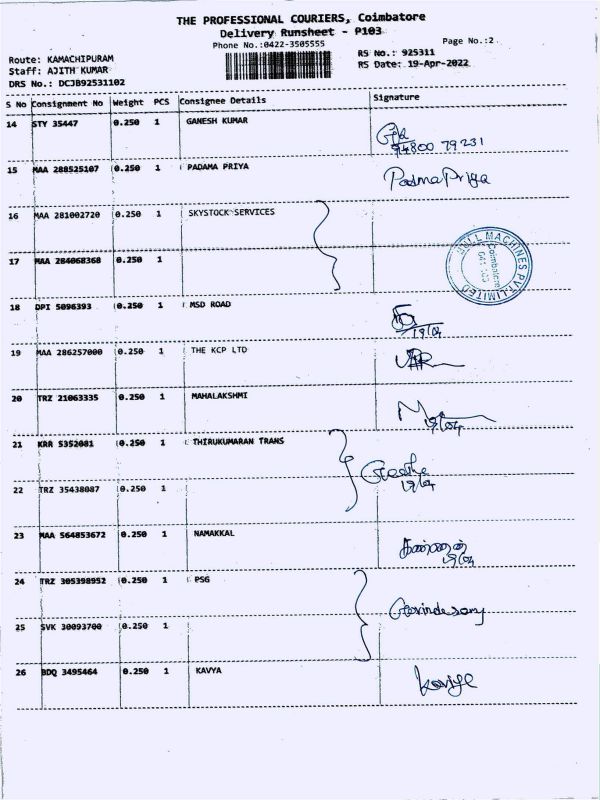 THE PROFESSIONAL COURIERS, Coimbatore
Delivery Runsheet - P103
Phone No.:0422-3505555
Page No.:2
Route: KAMACHIPURAM
Staff: AJITH KUMAR
DRS No.: DCJB92531102
RS No.: 925311
RS Date: 19-Apr-2022
S No Consignment No Weight PCS Consignee Details Signature
14 STY 35447 0.250 1 GANESH KUMAR
94800 79231
15 MAA 288525107 0.250 1 PADAMA PRIYA Padma Priya
16 MAA 281002720 0.250 1 SKYSTOCK SERVICES
MACHINES PVT. LIMITED
Coimbatore
17 MAA 284068368 0.250 1
18 DPI 5096393 0.250 1 MSD ROAD
19/04
19 MAA 286257000 0.250 1 THE KCP LTD
20 TRZ 21063335 0.250 1 MAHALAKSHMI
19/04
21 KRR 5352081 0.250 1 THIRUKUMARAN TRANS
19/04
22 TRZ 35438087 0.250 1
23 MAA 564853672 0.250 1 NAMAKKAL
19/04
24 TRZ 305398952 0.250 1 PSG
25 SVK 30093700 0.250 1
26 BDQ 3495464 0.250 1 KAVYA